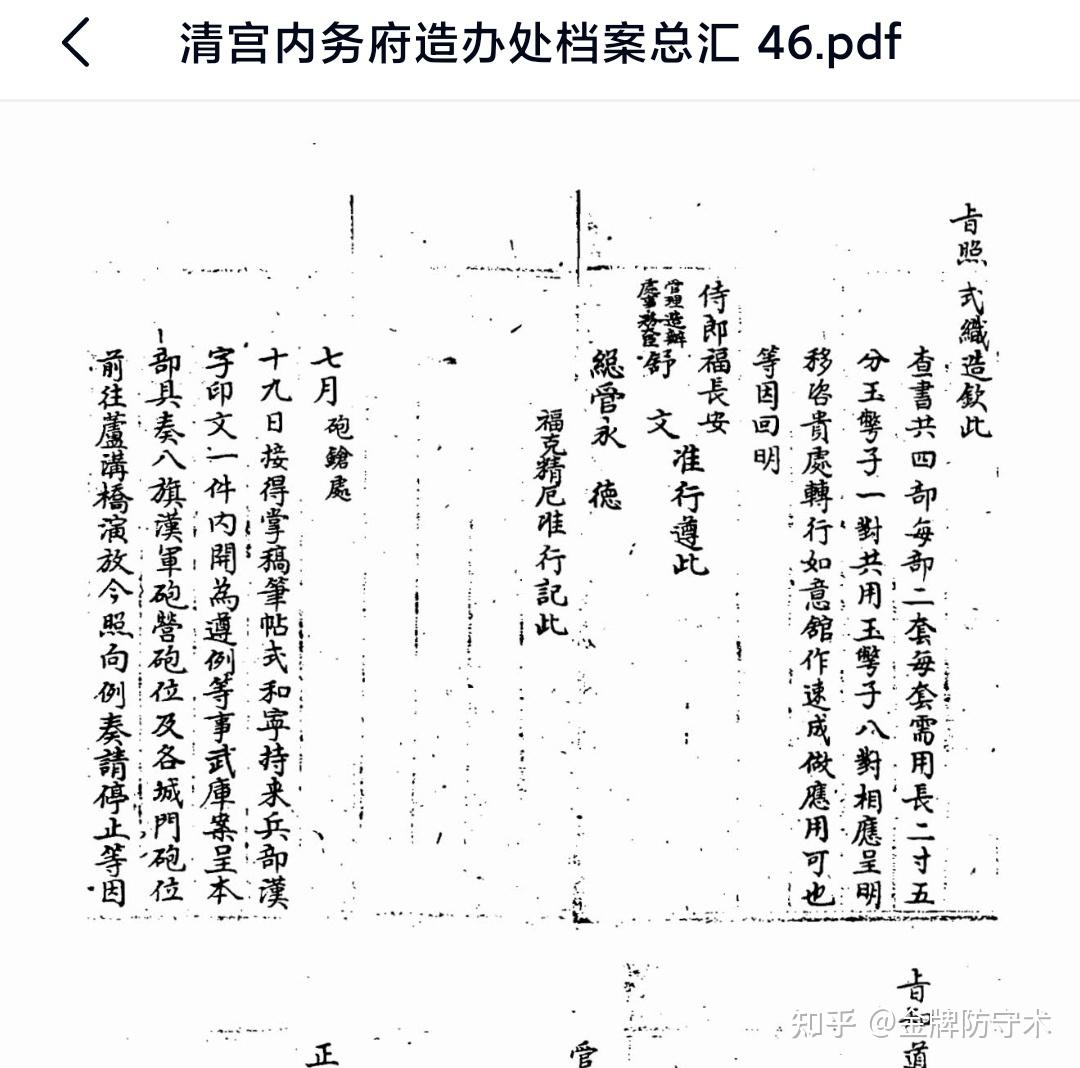 清宫内务府造办处档案总汇 46.pdf
旨照式織造欽此
查書共四部每部二套每套需用長二寸五
分玉彆子一對共用玉彆子八對相應呈明
移咨貴處轉行如意舘作速成做應用可也
等因回明
侍郎福長安
管理造辦
處事務
舒文
准行遵此
總管永德
福克精厄准行記此
七月
砲鎗處
十九日接得掌稿筆帖式和寧持来兵部漢
字印文一件内開為遵例等事武庫案呈本
部具奏八旗漢軍砲營砲位及各城門砲位
前往蘆溝橋演放今照向例奏請停止等因
旨知道
管
正
知乎 @金牌防守术